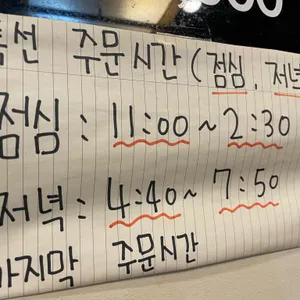 특선 주문시간 (점심, 저녁
점심 : 11:00 ~ 2:30
저녁 : 4:40 ~ 7:50
마지막 주문시간